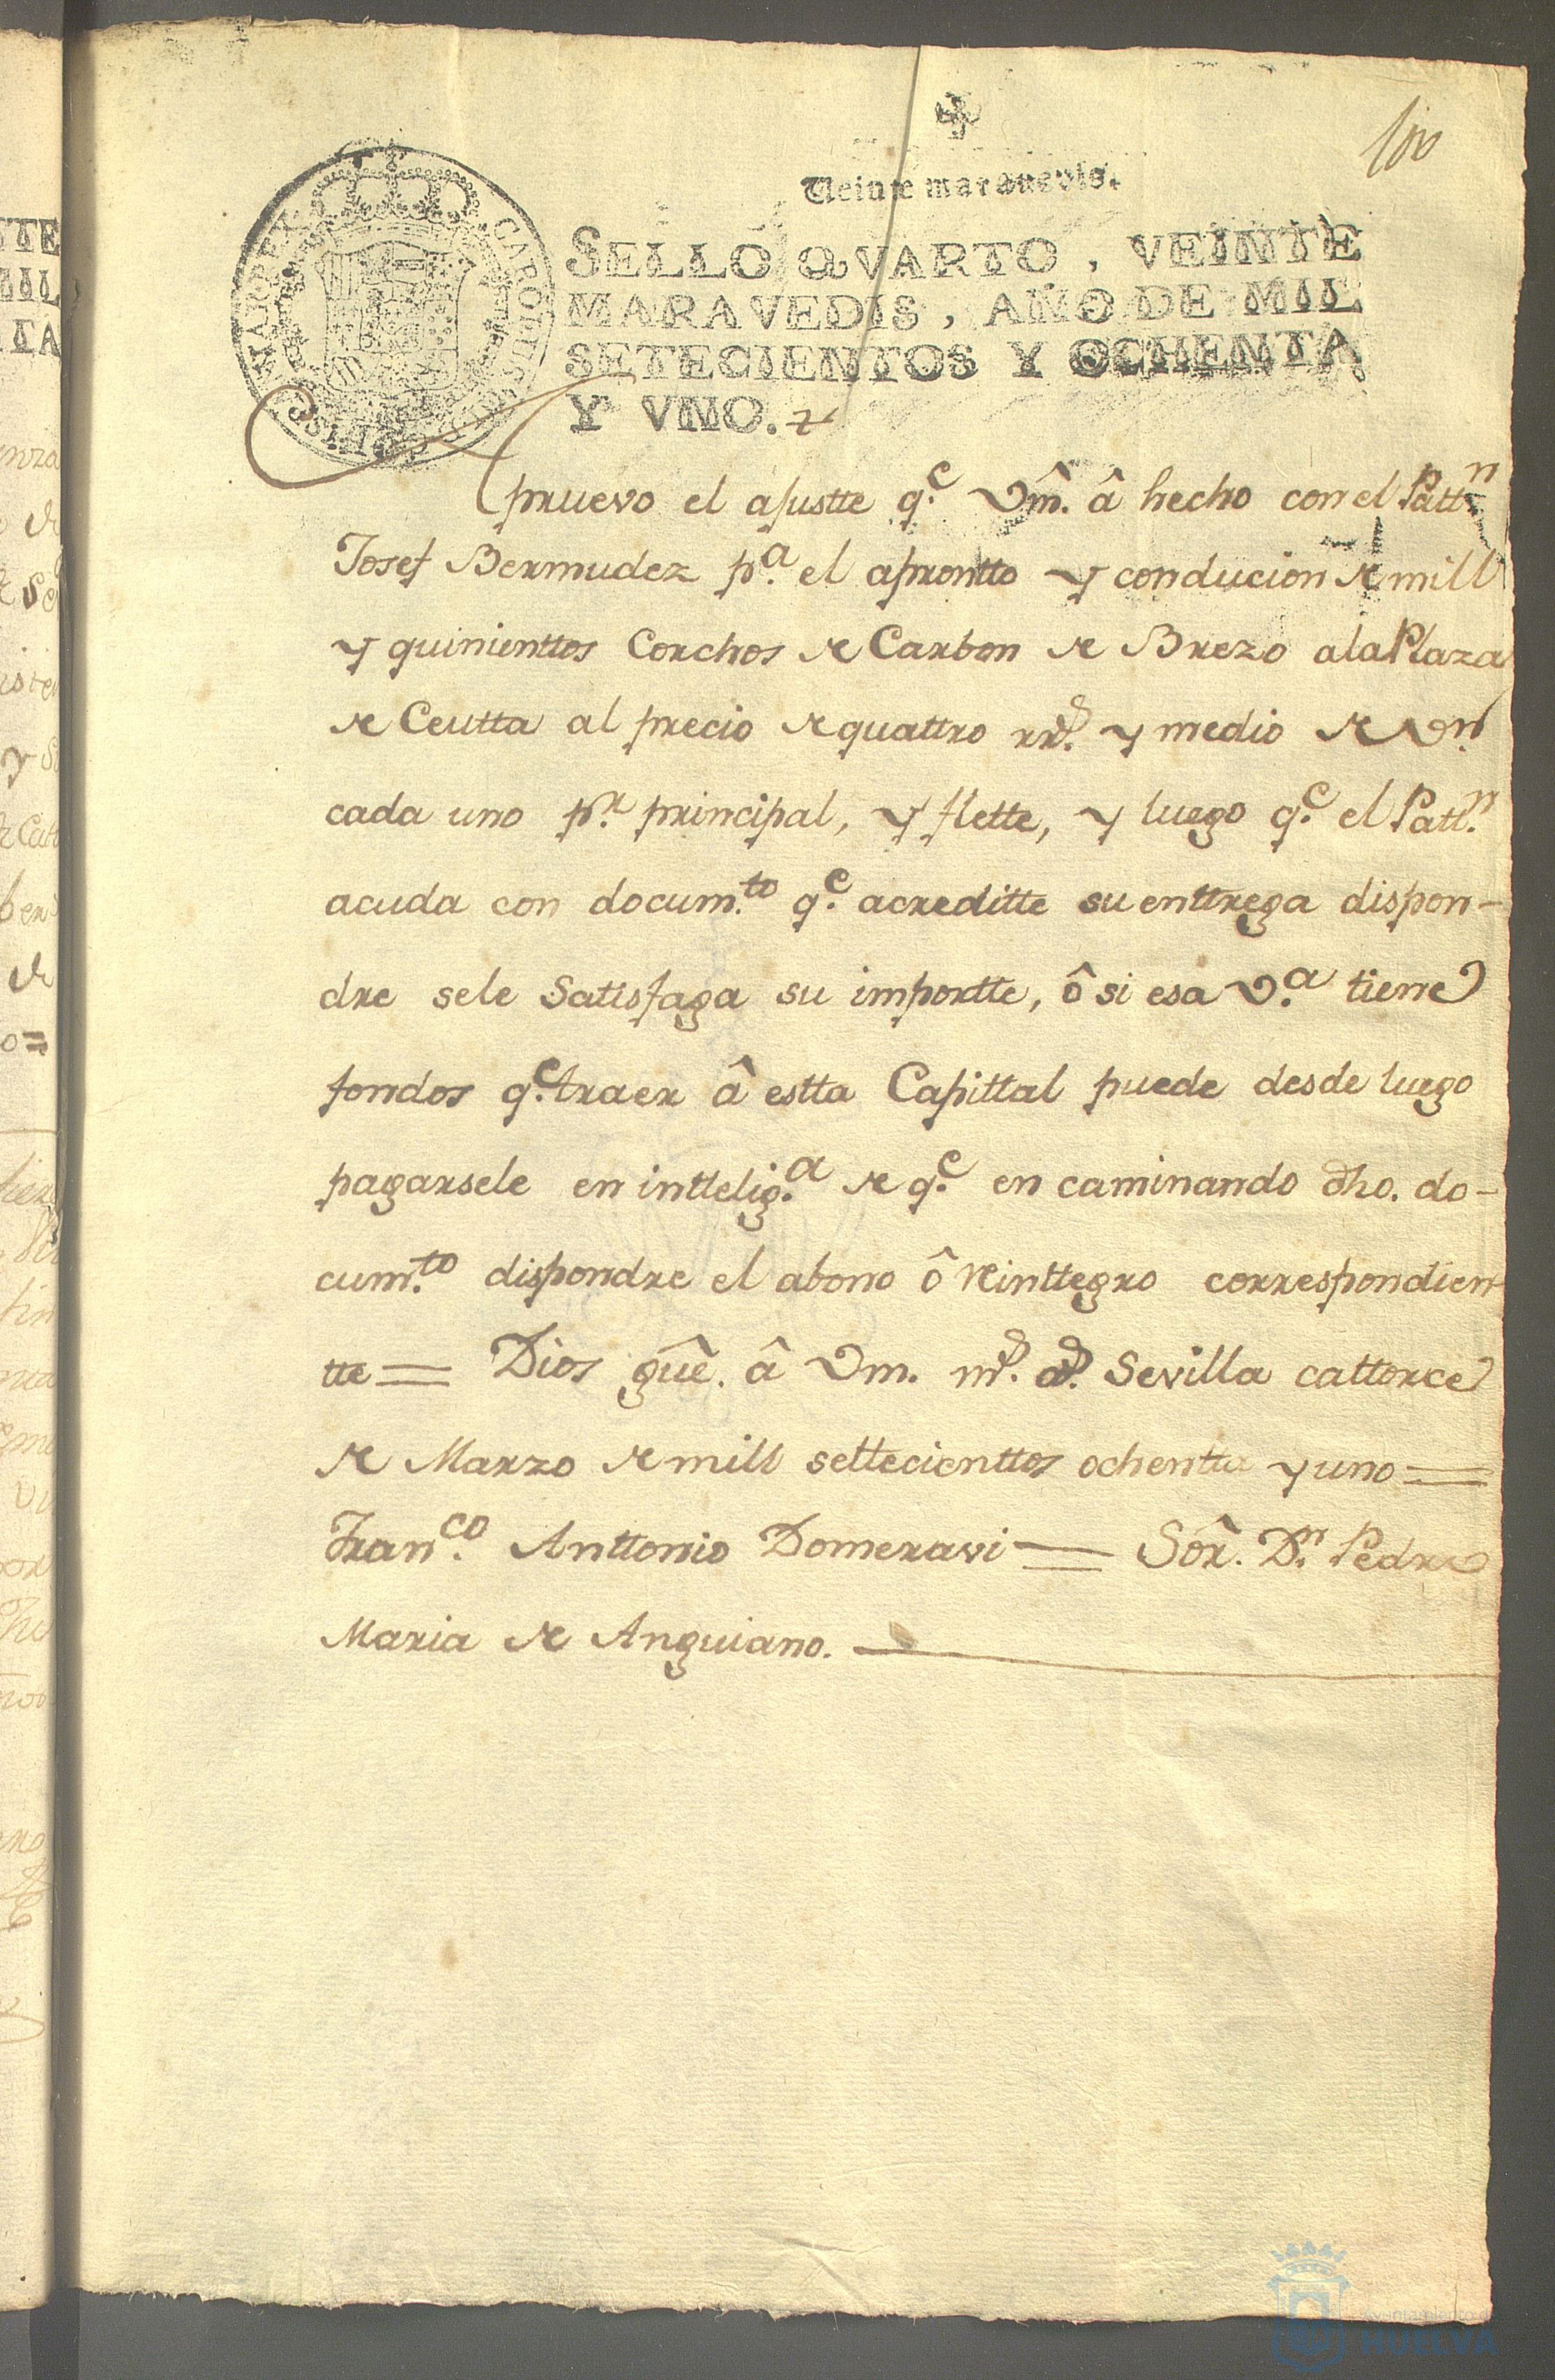 100
Veinte maravedis.
SELLO QVARTO, VEINTE
MARAVEDIS, AÑO DE MIL
SETECIENTOS Y OCHENTA
Y VNO.
Apruevo el ajustte q.e Vm̂. â hecho con el Patt.n
Josef Bermudez p.a el apromtto y conducion de mill
y quinienttos Corchos de Carbon de Brezo ala Plaza
de Ceutta al precio de quattro rr.s y medio de v.n
cada uno p.r principal, y flette, y luego q.e el Patt.n
acuda con docum.to q.e acreditte su enttrega dispon-
dre sele Satisfaga su importte, ô si esa V.a tiene
fondos q.e traer â estta Capittal puede desde luego
pagarsele en inttelig.a de q.e en caminando dho. do-
cum.to dispondre el abono ô reinttegro correspondien-
tte = Dios guê. â Vm. m.s a.s Sevilla cattorce
de Marzo de mill settecienttos ochentta y uno =
Fran.co Anttonio Domeravi = Sôr. D.n Pedro
Maria de Anguiano.
HUELVA